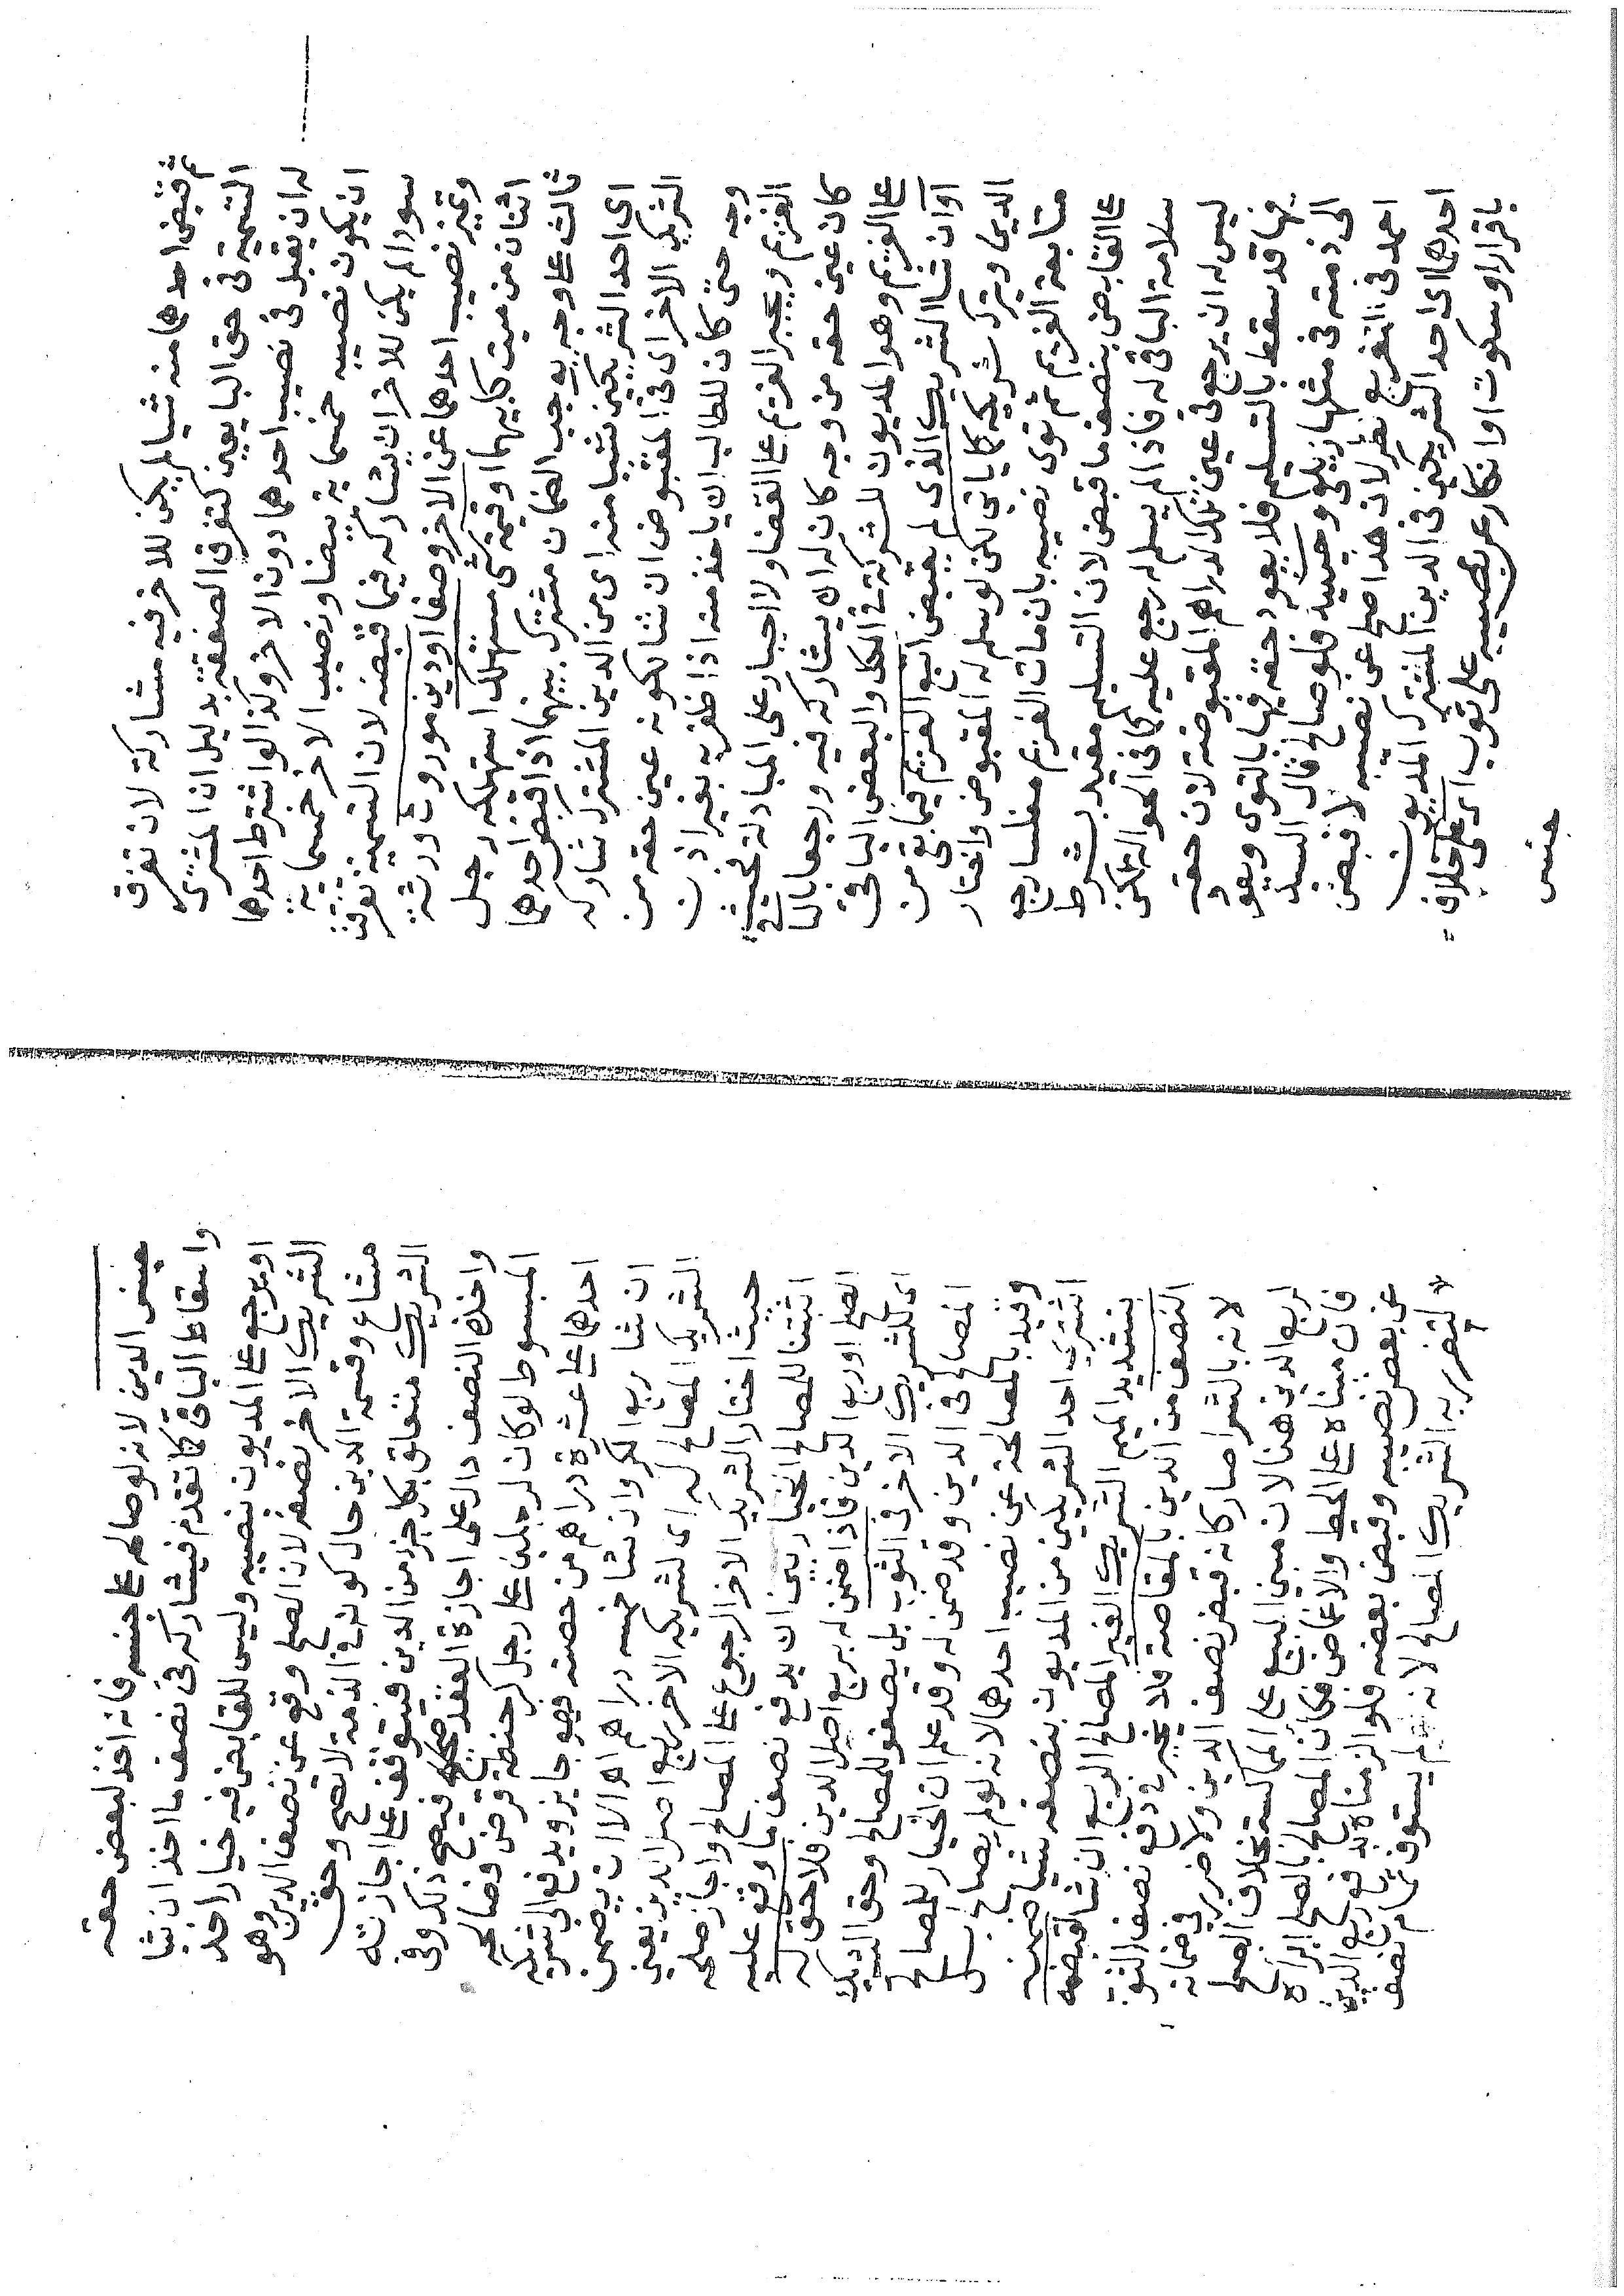 فقبض احدهما منه شيا لم يكن للاخر فيه مشاركة لان تفرق
التسمية في حق البايعين كتفرق الصفقة بدليل ان المشترى
له ان يقبل في نصيب احدهما دون الاخر وكذا لو اشترط احدهما
ان يكون نصيبه خمسماية بيضا ونصيب الاخر خمسماية
سودا لم يكن للاخر ان يشاركه فيما قبضه لان التسمية تفرقت
وتميز نصيب احدهما عن الاخر وصفا او دين موروث ورثه
اثنان من ميت كابيهما او قيمة شي مستهلك استهلكه رجل
ثالث على وجه يوجب الضمان مشترك بينهما اذا قبض احدهما
اى احد الشريكين شيا منه اى من الدين المشترك شاركه
الشريك الاخر اى في المقبوض ان شا لكونه عين حقه من
وجه حتى كان للطالب ان ياخذ منه اذا ظفر به بغير اذن
الغريم ويجبر الغريم على القضا ولا اجبار على المبادلة فحيث
كان عين حقه من وجه كان له ان يشاركه فيه ورجعا بالباقي
على الغريم وهو المديون للشركة في الكل والبعض الباقي
او ان شا الشريك الذى لم يقبض اتبع الغريم فيما بقى من
الدين وترك شريكه كما ياتى لكن لو سلم له المقبوض واختار
متابعة الغريم ثم توى نصيبه بان مات الغريم مفلسا رجع
على القابض بنصف ما قبض لان التسليم مقيد بشرط
سلامة الباقي له فاذا لم يسلم له رجع عليه كما في الحوالة لكن
ليس له ان يرجع في عين تلك الدراهم المقبوضة لان حقه
فيها قد سقط بالتسليم فلا يعود حقه فيها بالتوى ويعود
الى ذمته في مثلها زيلعى وحينيذ فلو صالح قال السيد
احمد في التفريع نظر لان هذا صلح عن نصيبه لا قبض
احدهما اى احد الشريكين في الدين المشترك المديون
باقرار او سكوت او انكار عن نصيبه على ثوب اى على خلاف
جنس
جنس الدين لانه لو صالحه على جنسه فانه اخذ لبعض حقه
واسقاط الباقي كما تقدم فيشاركه في نصف ما اخذ ان شا
او يرجع على المديون بنصيبه وليس للقابض فيه خيار اخذ
الشريك الاخر نصفه لان الصلح وقع عن نصف الدين وهو
مشاع وقسمة الدين حال كونه في الذمة لا تصح وحق
الشريك متعلق بكل جزء من الدين فيتوقف على اجازته
واخذه النصف دال على اجازة العقد فيصح ذلك وفي
المبسوط لو كان لرجلين على رجل كر حنطة قرض فصالحه
احدهما على عشرة دراهم من حصته فهو جايز ويدفع الى شريكه
ان شا ربع الكر وان شا خمسه دراهم اه الا ان يضمن
الشريك المصالح له اى لشريكه الاخر ربع اصل الدين يعنى
حيث اختار الشريك الاخر الرجوع على المصالح واجاز صلحه
اثبتنا للمصالح الخيار بين ان يدفع نصف ما وقع عليه
الصلح او ربع الدين فاذا ضمن له ربع اصل الدين فلا حق له
اى للشريك الاخر في الثوب بل نصفه للمصالح وحق الشريك
المصالح في الدين وقد ضمن له وقد علم ان الخيار للمصالح
وقيد بالمصالحة عن نصيب احدهما لانه لو لم يصالح بل
اشترى احد الشريكين من المديون بنصفه شيا ضمنه
بتشديد الميم الشريك الغير المصالح الربع ان شا لقبضه
النصف من الدين بالمقاصة فلا يخير في دفع نصف الثوب
لانه بالشرا صار كانه قبض نصف الدين ولا ضرر في ضمانه
لربع الدين هنا لان مبنى البيع على المماكسة بخلاف الصلح
فان مبناه على الحط والاغماض فكان المصالح بالصلح ابراه
عن بعض نصيبه وقبض بعضه فلو الزمناه بدفع ربع الدين
لتضرر به الشريك المصالح لانه لم يستوف تمام نصف